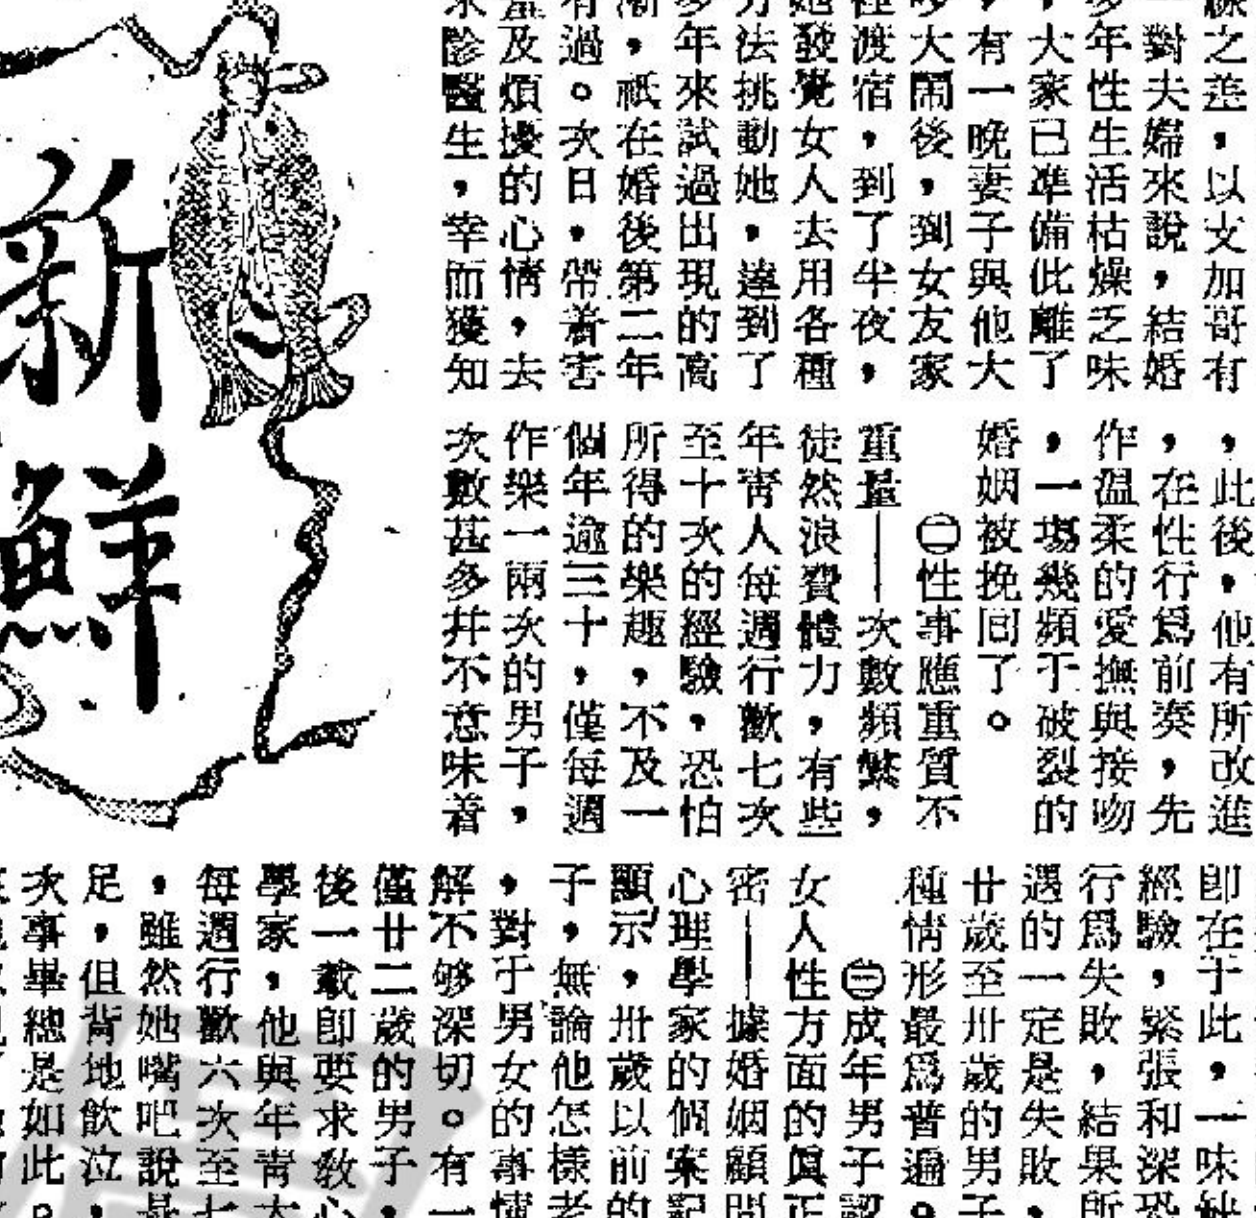 之差，以支加哥有
一對夫婦來說，結婚
多年性生活枯燥乏味
，大家已準備此離了
，有一晚妻子與他大
吵大鬧後，到女友家
裡渡宿，到了半夜，
她發覺女人去用各種
方法挑動她，達到了
多年來試過出現的高
潮，祇在婚後第二年
有過。次日，帶着害
羞及煩擾的心情，去
求診醫生，幸而獲知
新鮮
，此後，他有所改進
，在性行爲前奏，先
作溫柔的愛撫與接吻
，一場幾頻于破裂的
婚姻被挽回了。
㊁性事應重質不
重量——次數頻繁，
徒然浪費體力，有些
年靑人每週行歡七次
至十次的經驗，恐怕
所得的樂趣，不及一
個年逾三十，僅每週
作樂一兩次的男子，
次數甚多幷不意味着
卽在于此，一味
經驗，緊張和深恐
行爲失敗，結果所
遇的一定是失敗，
廿歲至卅歲的男子
種情形最爲普遍。
㊂成年男子認
女人性方面的眞正
密——據婚姻顧問
心理學家的個案記
顯示，卅歲以前的
子，無論他怎樣老
，對于男女的事情
解不够深切。有一
僅廿二歲的男子，
後一載卽要求教心
學家，他與年靑太
每週行歡六次至七
，雖然她嘴吧說是
足，但背地飲泣，
次事畢總是如此。